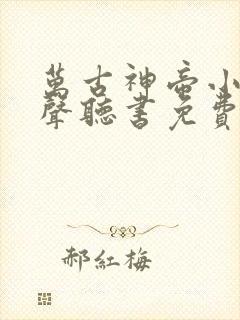 萬古神帝小
聲聽書免費
郝紅梅